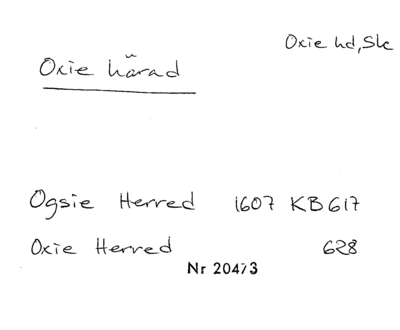 Oxie hd, Sk
Oxie härad
Ogsie Herred 1607 KB 617
Oxie Herred 628
Nr 20473